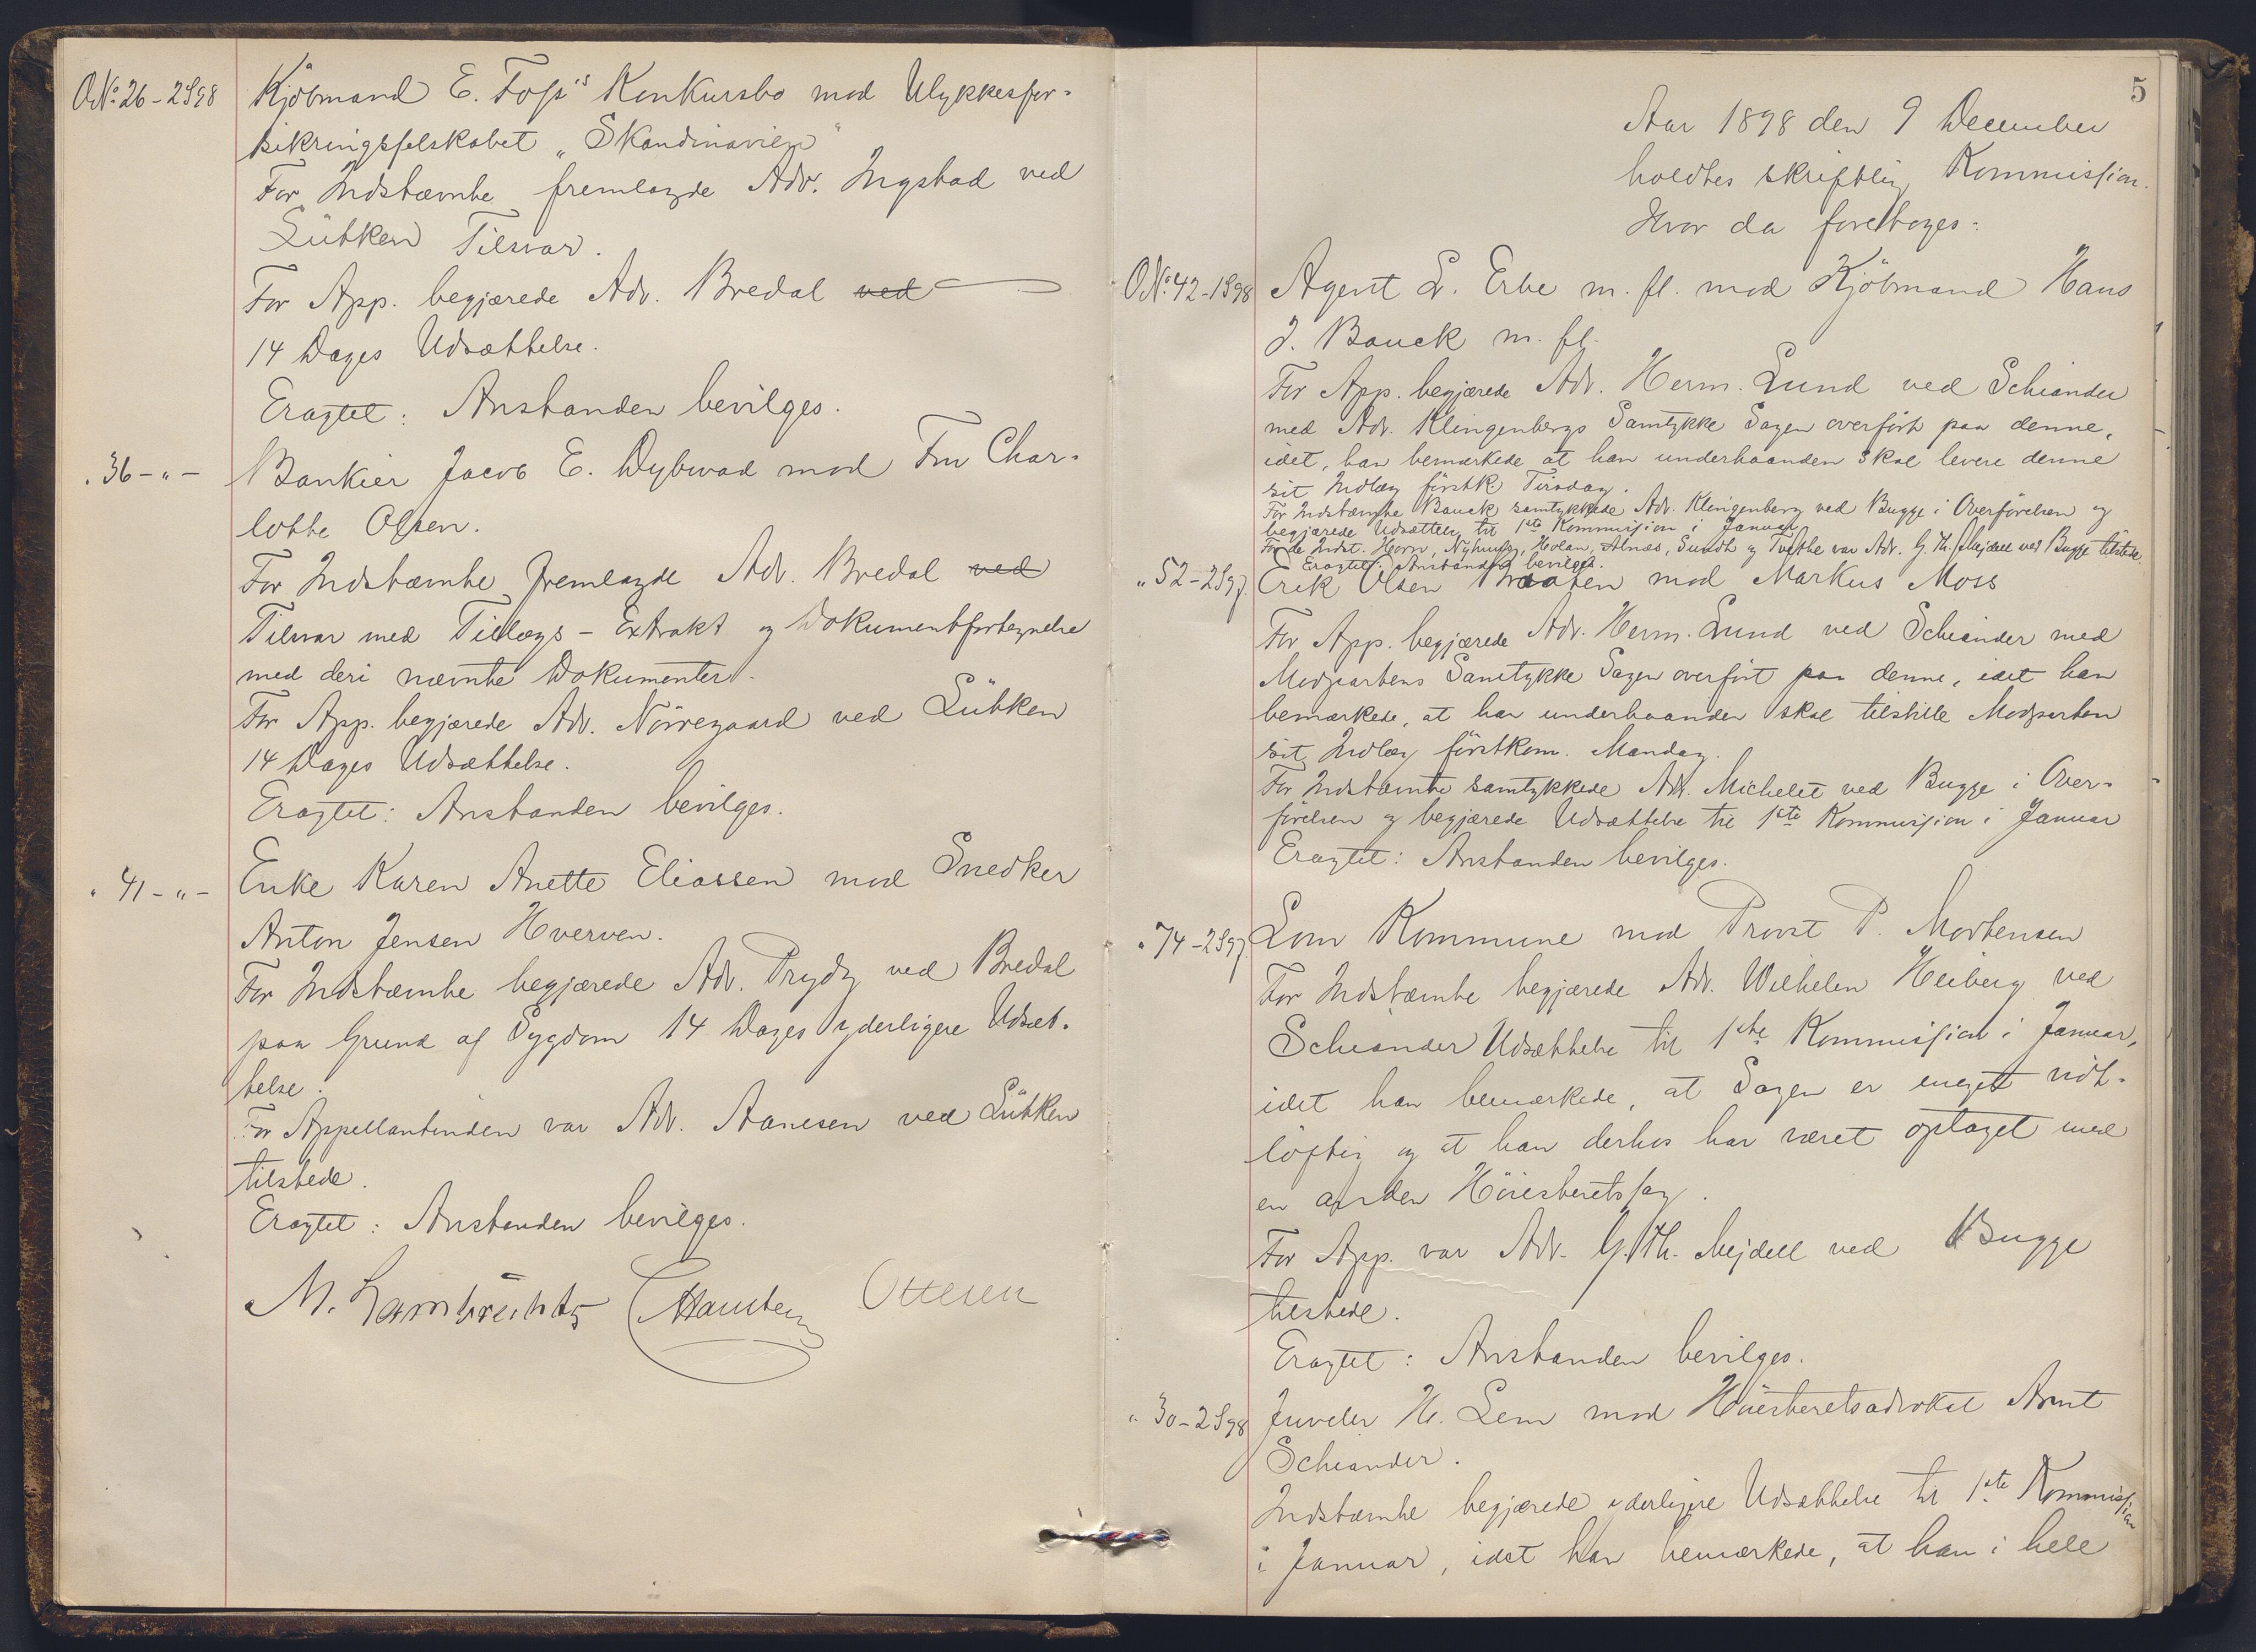 O.No. 26-2S98 Kjöbmand E. Foss's Konkursbo mod Ulykkesfor-
sikringsselskabet "Skandinavien"
For Indstævnte fremlagde Adv. Ingstad ved
Lübken Tilsvar.
For App. begjærede Adv. Bredal ved
14 Dages Udsættelse.
Eragtet: Anstanden bevilges.
" 36-"- Bankier Jacob E. Dybwad mod Fru Char-
lotte Olsen.
For Indstævnte fremlagde Adv. Bredal ved
Tilsvar med Tillægs-Extrakt og Dokumentfortegnelse
med deri nævnte Dokumenter.
For App. begjærede Adv. Nörregaard ved Lübken
14 Dages Udsættelse.
Eragtet: Anstanden bevilges.
" 41-"- Enke Karen Anette Eliassen mod Snedker
Anton Jensen Hverven.
For Indstævnte begjærede Adv. Prydz ved Bredal
paa Grund af Sygdom 14 Dages yderligere Udsæt-
telse.
For Appellantinden var Adv. Aanesen ved Lübken
tilstede.
Eragtet: Anstanden bevilges.
M. Lambrechts Ottesen
5
Aar 1898 den 9 December
holdtes skriftlig Kommission.
Hvor da foretoges:
O.No. 42-1S98 Agent L. Erbe m. fl. mod Kjöbmand Hans
J. Bauck m. fl.
For App. begjærede Adv. Herm. Lund ved Schiander
med Adv. Klingenbergs Samtykke Sagen overfört paa denne,
idet han bemærkede at han underhaanden skal levere denne
sit Indlæg förstk. Tirsdag.
For Indstævnte Bauck samtykkede Adv. Klingenberg ved Bugge i Overförelsen og
begjærede Udsættelse til 1ste Kommission i Januar
For de Indst. Horn, Nyhuus, Holan, Alnæs, Sundt og Tvethe var Adv. G. Th. Mejdell ved Bugge tilstede.
Eragtet: Anstanden bevilges.
" 52-2S97. Erik Olsen Braaten mod Markus Moss
For App. begjærede Adv. Herm. Lund ved Schiander med
Modpartens Samtykke Sagen overfört paa denne, idet han
bemærkede, at han underhaanden skal tilstille Modparten
sit Indlæg förstkom. Mandag.
For Indstævnte samtykkede Adv. Michelet ved Bugge i Over-
förelsen og begjærede Udsættelse til 1ste Kommission i Januar
Eragtet: Anstanden bevilges.
" 74-2S97. Lom Kommune mod Provst P. Mortensen
For Indstævnte begjærede Adv. Wilhelm Heiberg ved
Schiander Udsættelse til 1ste Kommission i Januar,
idet han bemærkede, at Sagen er meget vidt-
löftig og at han derhos har været optaget med
en anden Höiesteretssag.
For App. var Adv. G. Th. Mejdell ved Bugge
tilstede.
Eragtet: Anstanden bevilges.
" 30-2S98 Juveler H. Lem mod Höiesteretsadvokat Arnt
Schiander.
Indstævnte begjærede yderligere Udsættelse til 1ste Kommission
i Januar, idet han bemærkede, at han i hele